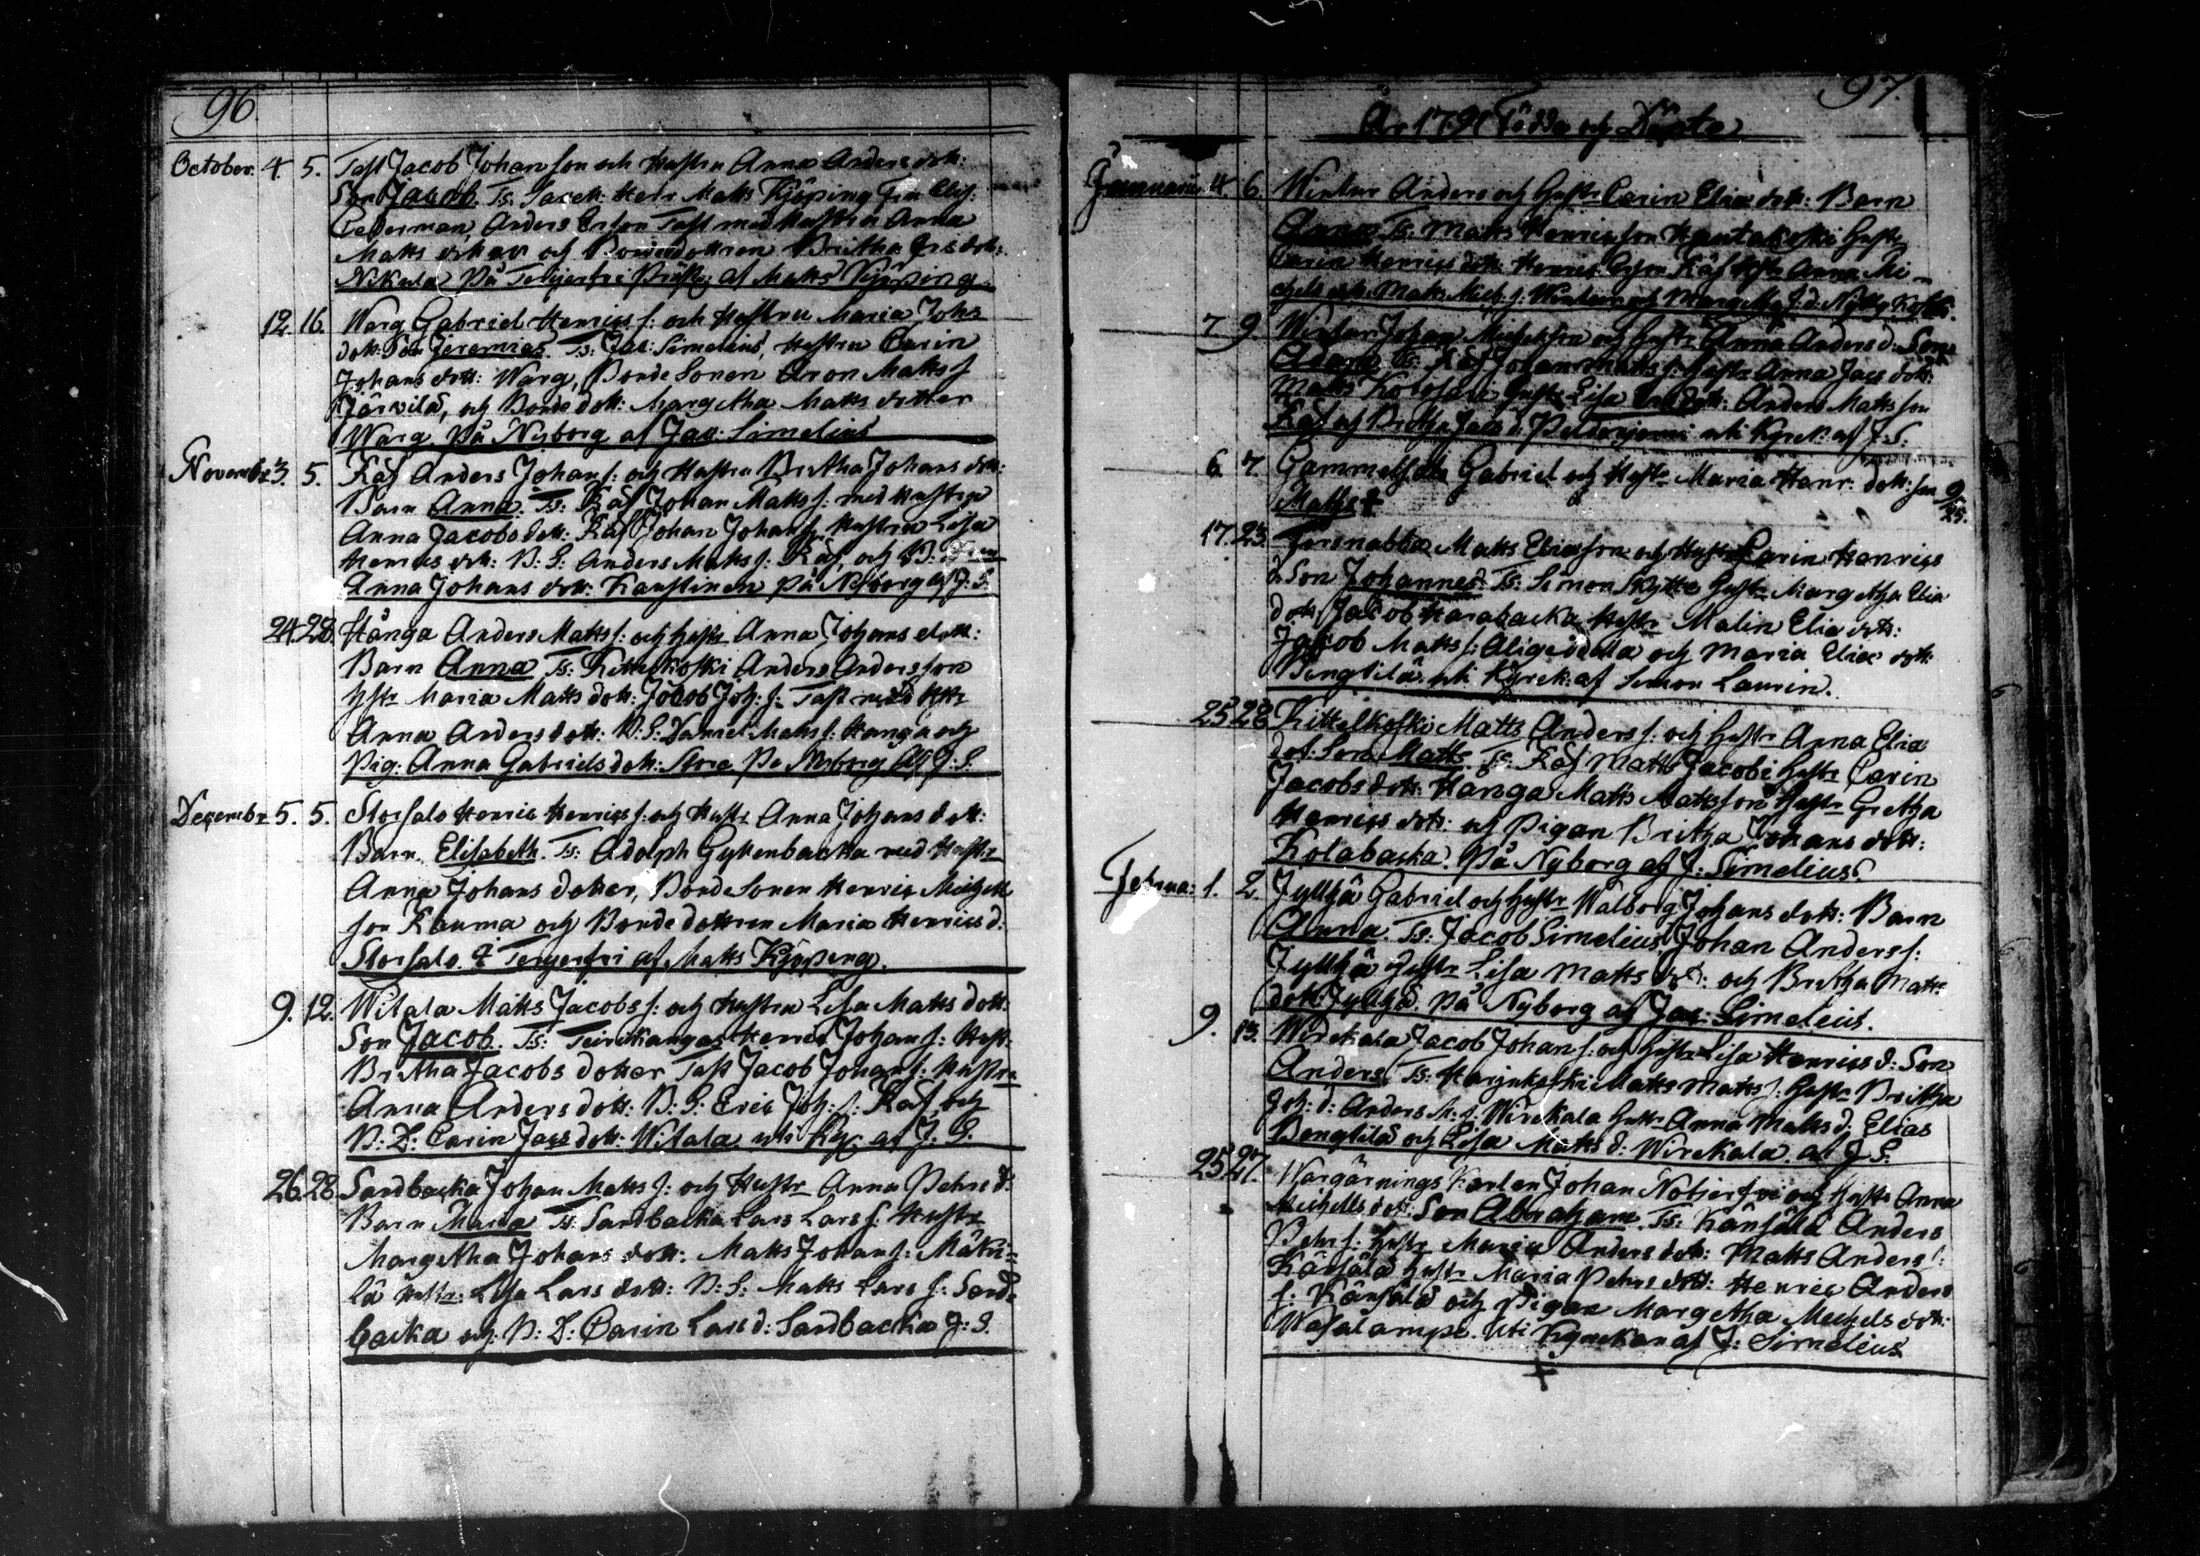 96.
October. 4. 5. Tast Jacob Johanson och Hustru Anna Anders dott:
Son Jacob. Ts: Sacell: Herr Matts Kjöping Fru Elis:
Cederman, Anders Ersson Tast med Hustru Anna
Matts dotter och Bondedottren Britha Ers dott:
Nikula På Terijerfvi Prestg: af Matts Kjöping.
12. 16. Warg Gabriel Henrics s: och Hustru Maria Johs
dott: Son Jeremias. Ts: Jac: Simelius, Hustru Carin
Johans dott: Warg, Bonde Sonen Aron Matts s
Järvilä, och Bondedott: Margetha Matts dotter
Warg. På Nyborg af Jac: Simelius
Novembr 3. 5. Räf Anders Johans: och Hustru Britha Johans dott:
Barn Anna. Ts: Räf Johan Matts s: med Hustru
Anna Jacobs dott: Räf Johan Johans s. Hustru Lisa
Henrics dott: B: S: Anders Matts s: Räf, och B:
Anna Johans dott: Kaustinen på Nyborg af J: S.
24. 28. Hånga Anders Matts s: och Hustr Anna Johans dott:
Barn Anna Ts: Kittelkoski Anders Andersson
Hstr Maria Matts dott: Jacob Joh: s: Tast med Hstr
Anna Anders dott: B: S: Daniel Matts s: Hanga och
Pig: Anna Gabriels dott: Stora På Nyborg Af J: S.
Decembr 5. 5. Storsalo Henric Henrics s: och Hustr Anna Johans dott:
Barn Elisabeth. Ts: Adolph Gyllenbacka med Hustr
Anna Johans dotter, Bonde Sonen Henric Michells
son Rauma och Bondedottren Maria Henrics d:
Storsalo. i Terijerfvi af Matts Kjöping.
9. 12. Witala Matts Jacobs s: och Hustru Lisa Matts dott:
Son Jacob. Ts: Teirikangas Henric Johans s: Hust:
Britha Jacobs dotter Tast Jacob Johans s: Hustru
Anna Anders dott: B: S: Eric Joh: s: Räf, och
B: D: Carin Jacs dott: Witala uti Kyr: af J. S.
26. 28. Sandbacka Johan Matts s: och Hustr Anna Pehrs d:
Barn Maria Ts: Sandbacka Lars Lars s: Hustr
Margetha Johans dott: Matts Johans s: Mäki=
lä Hustr: Lisa Lars dott: B: S: Matts Lars s: Sand=
backa och B: D: Carin Lars d: Sandbacka J: S.
97.
År 1791 Födde och Döpte
Januarii 4. 6. Wintur Anders och Hustr Carin Elia dott: Barn
Anna Ts: Matts Henricsson Kautakoski Hustr
Carin Henrics dott: Henric Räf Hstr Anna Mi=
chels dott: Matts Mich: s: Wintur och Margetha J: d: Nyby
7. 9. Wintur Johan Michelsson och Hustr Anna Anders d: Son
Adam Ts: Räf Johan Matts s: Hustr Anna Jacs dott:
Matts Hustr Lisa dott: Anders Matsson
Räf och Britha Jacs d: uti Kyrck: af J: S.
6. 7. Gabriel och Hustr Maria Henr: dott: son
Matts †
17. 23. Matts Eliasson och Hustr Carin Henrics
d Son Johannes Ts: Simon Kytte Hustr Margetha Elia
dott: Jacob Harabacka Hustr Malin Elia dott:
Jacob Matts s: och Maria Elia dott:
Bengtilä uti Kyrck: af Simon Laurin.
25 28. Kittelkoski Matts Anders s: och Hustr Anna Elia
dot: Son Matts Ts: Räf Matts Jacobs: Hustr Carin
Jacobs dott: Hånga Matts Mattsson Hustr Gretha
Henrics dott: och Pigan Britha Johans dott:
Kolabacka. På Nyborg af J: Simelius.
Februa: 1. 2. Jyllhä Gabriel och Hustr Walborg Johans dott: Barn
Anna. Ts: Jacob Simelius, Johan Anders s:
Jyllhä Hustr Lisa Matts dot: och Britha Matts
dott: Jyllhä. På Nyborg af Jac: Simelius.
9. 13. Wirekala Jacob Johans: och Hustr Lisa Henrics d: Son
Anders Ts: Harjukoski Matts Matts s: Hustr Britha
Joh: d: Anders M: s: Wirekala Hustr Anna Matts d: Elias
Bengtilä och Lisa Matts d: Wirekala. af J S.
25 27. Wargärnings Karlen Johan och Hustr Anna
Michells dot: Son Abraham. Ts: Känsälä Anders
Pehrs s: Hustr Maria Anders dott: Matts Anders s:
Känsälä Hustr Maria Pehrs dott: Henric Anders
s: Känsälä och Pigan Margetha Michels dott:
uti Kyrckan af J: Simelius
†